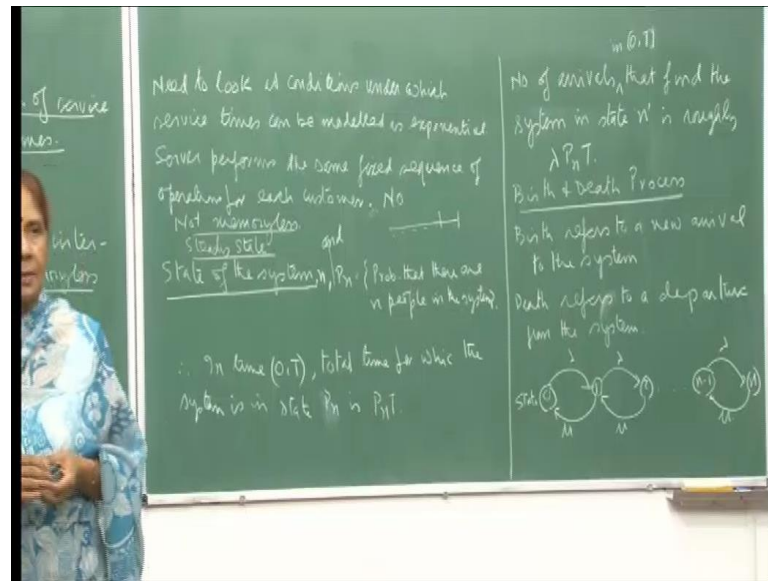 of service
mes.
inter-
Need to look at conditions under which
service times can be modelled as exponential
Server performs the same fixed sequence of
operations for each customer. No
Not memoryless.
Steady State
and
State of the system, n, Pn - {Prob. that there are
n people in the system}.
∴ In time (0,T), total time for which the
system is in state Pn is PnT.
in (0,T)
No of arrivals, that find the
system in state 'n' is roughly
λ PnT.
Birth & Death Process
Birth refers to a new arrival
to the system
Death refers to a departure
from the system.
λ λ λ
State 0 1 2 ... n-1 n
μ μ μ